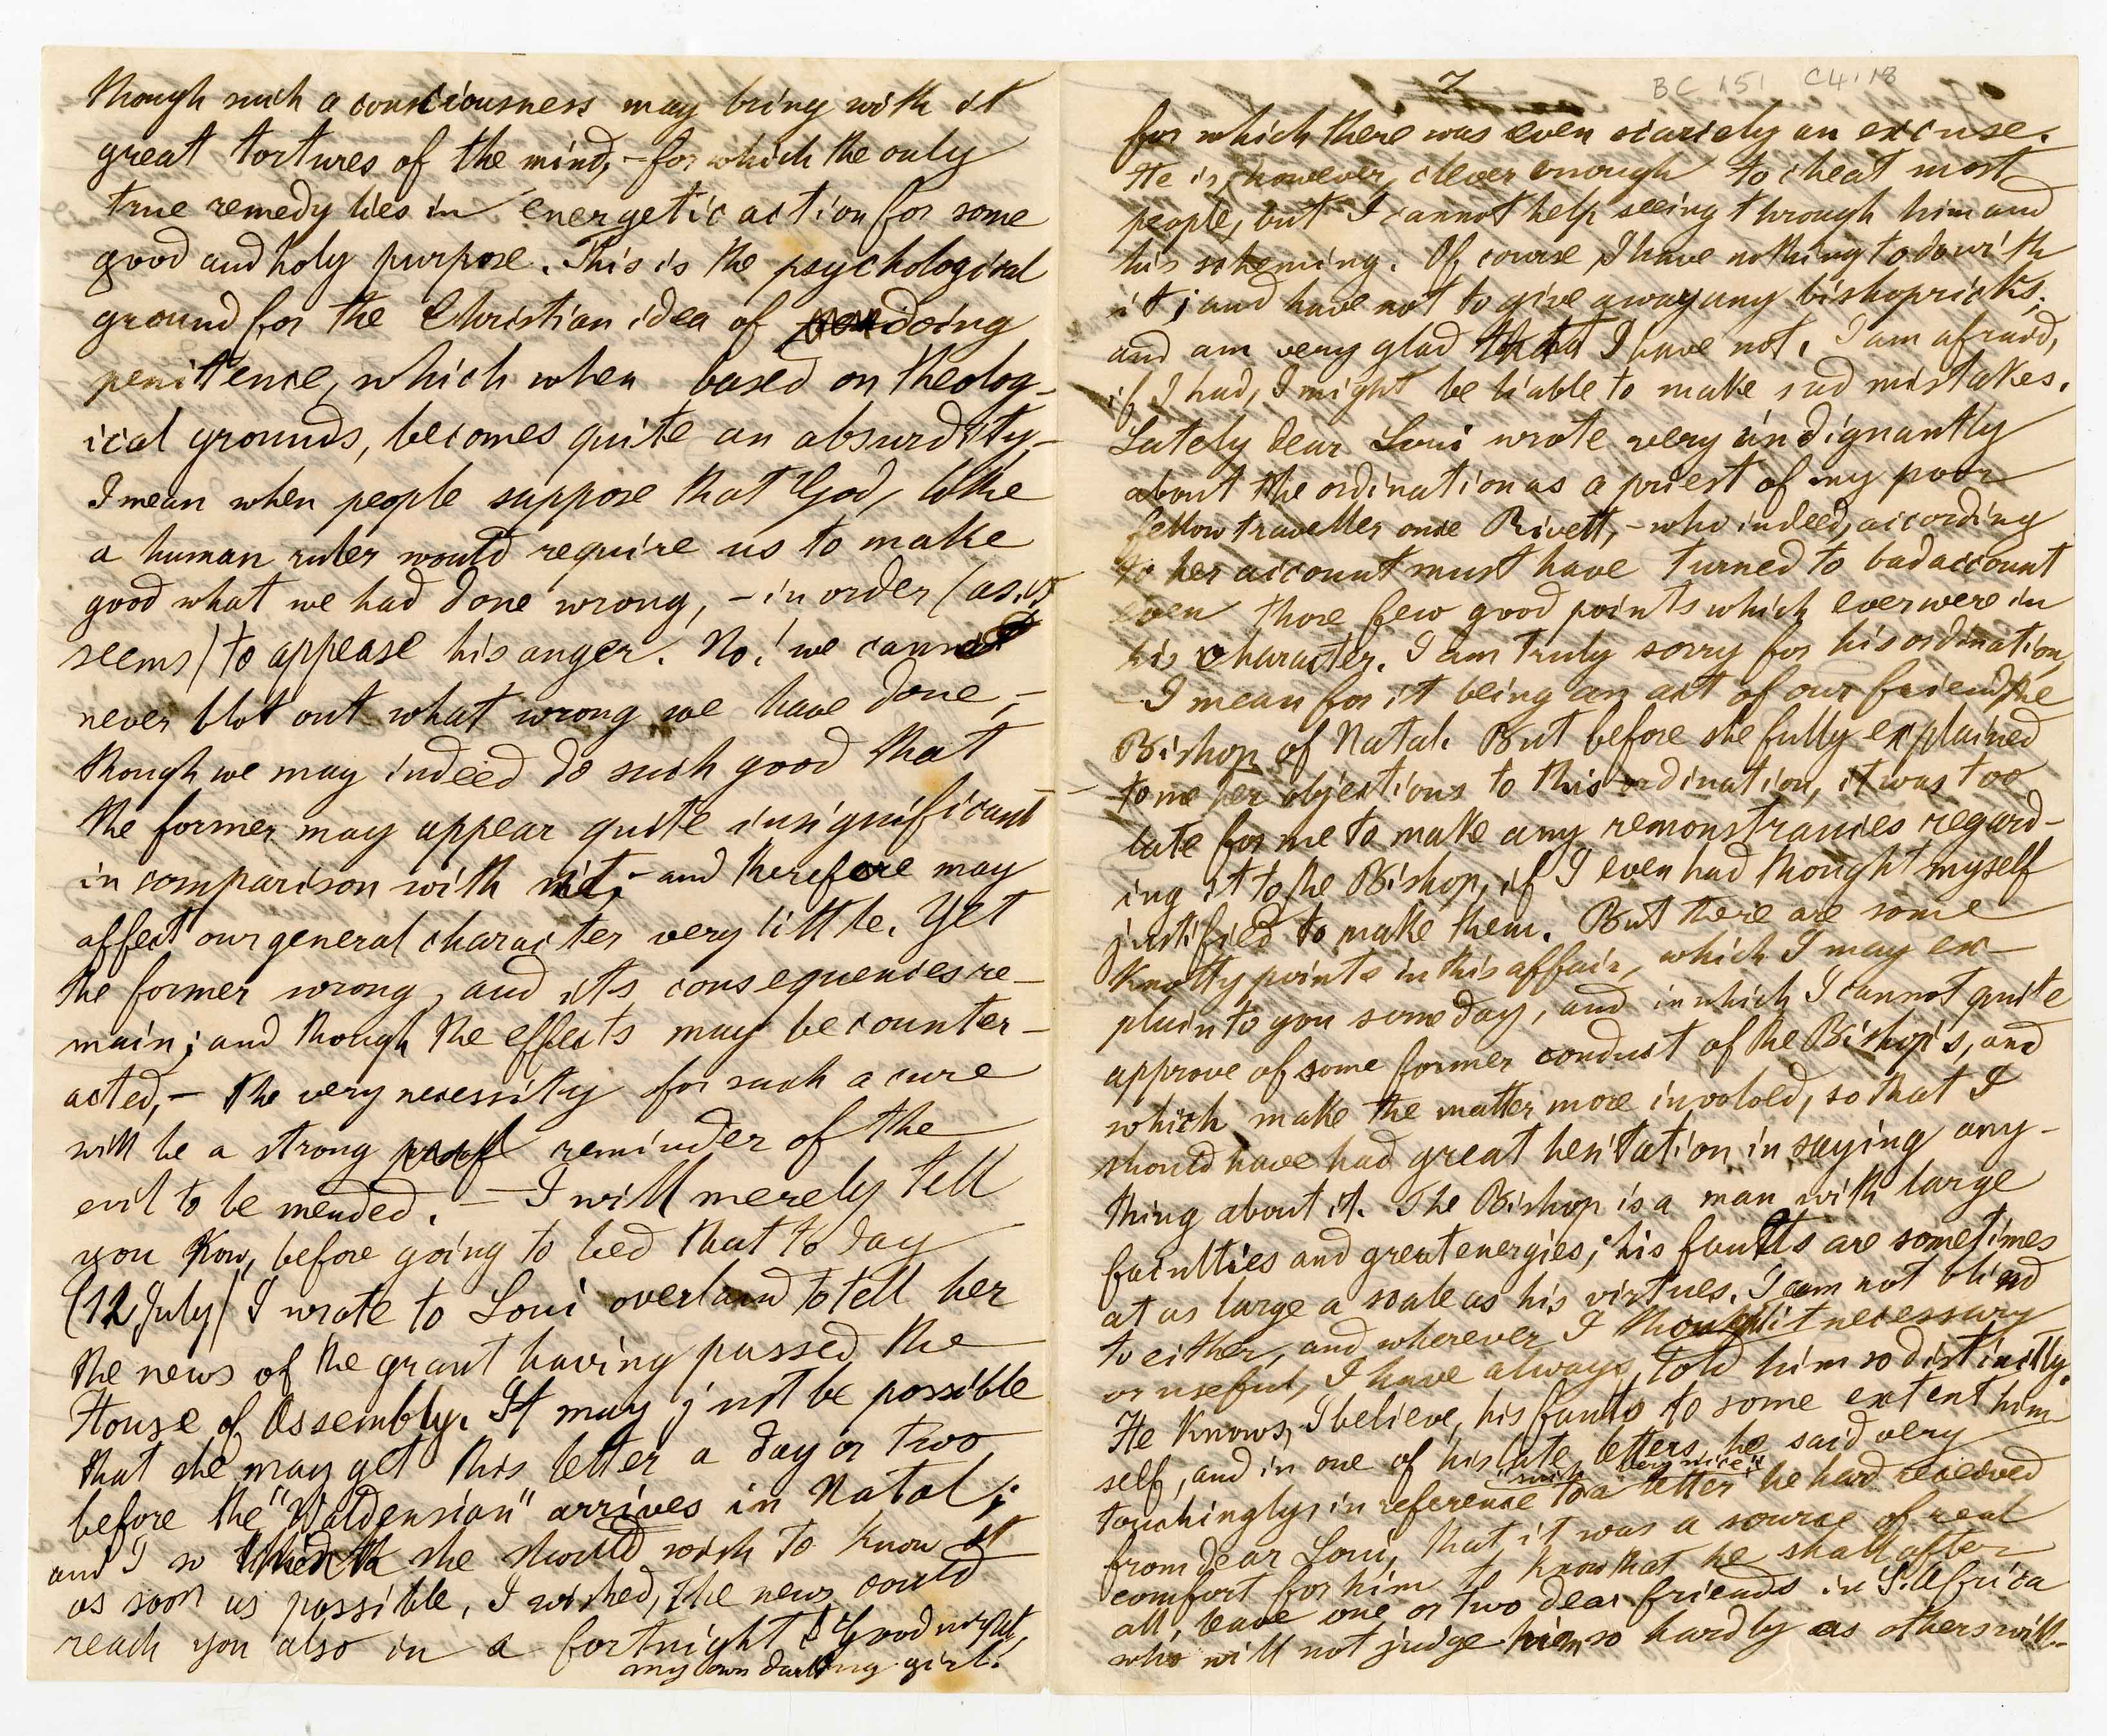 though such a consciousness may bring with it
great tortures of the mind, – for which the only
true remedy lies in energetic action for some
good and holy purpose. This is the psychological
ground for the Christian idea of doing
penitence, which when based on theolog-
ical grounds, becomes quite an absurdity, –
I mean when people suppose that God, like
a human ruler would require us to make
good what we had done wrong, – in order (as it
seems) to appease his anger. No! we can
never blot out what wrong we have done, –
though we may indeed do such good that
the former may appear quite insignificant
in comparison with it; – and therefore may
affect our general character very little. Yet
the former wrong, and its consequences re-
main; and though the effects may be counter-
acted, – the very necessity for such a cure
will be a strong proof reminder of the
evil to be mended. – I will merely tell
you now, before going to bed that to day
(12 July) I wrote to Loui overland to tell her
the news of the grant having passed the
House of Assembly. It may just be possible
that she may get this letter a day or two
before the "Waldensian" arrives in Natal;
and I so wished she should wish to know it
as soon as possible, I wished, the news could
reach you also in a fortnight! Good night,
my own darling girl!
7
BC 151 C4.18
for which there was even scarcely an excuse.
He is, however, clever enough to cheat most
people, but I cannot help seeing through him and
his scheming. Of course I have nothing to do with
it; and have not to give away any bishopricks;
and am very glad that I have not. I am afraid,
if I had, I might be liable to make sad mistakes.
Lately dear Loui wrote very indignantly
about the ordination as a priest of my poor
fellow traveller once Rivett, – who indeed, according
to her account must have turned to bad account
even those few good points which ever were in
his character. I am truly sorry for his ordination,
– I mean for it being an act of our friend the
Bishop of Natal. But before she fully explained
to me her objections to this ordination, it was too
late for me to make any remonstrances regard-
ing it to the Bishop, if I even had thought myself
justified to make them. But there are some
knotty points in this affair, which I may ex-
plain to you some day, and in which I cannot quite
approve of some former conduct of the Bishop's, and
which make the matter more involved, so that I
should have had great hesitation in saying any-
thing about it. The Bishop is a man with large
faculties and great energies; his faults are sometimes
at as large a scale as his virtues. I am not blind
to either, and wherever I thought it necessary
or useful, I have always told him so distinctly.
He knows, I believe, his faults to some extent him-
self, and in one of his late letters he said very
touchingly, in reference to a "such very nice" letter he had received
from dear Loui, that it was a source of real
comfort for him to know that he shall after
all, leave one or two dear friends in S. Africa
who will not judge him so hardly as others will. –